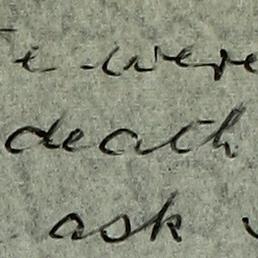 were
death
ask